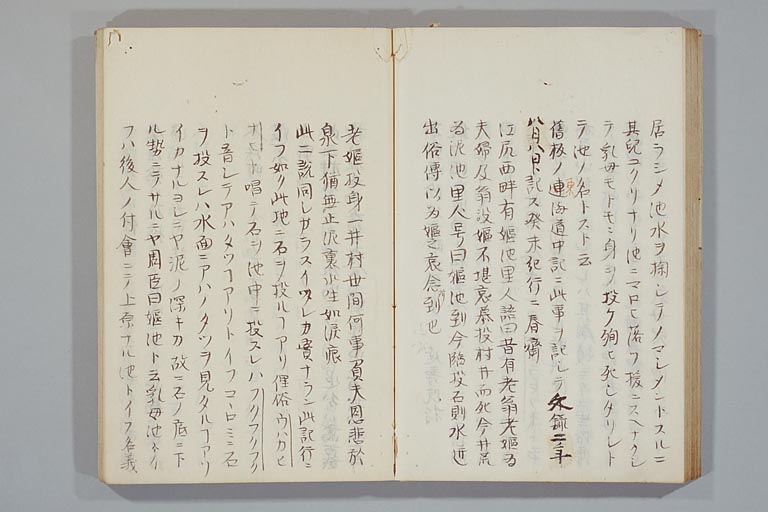 居ラシメ池水ヲ掬シテノマシメントスルニ
其児ユクリナリ池ニマロヒ落ツ援ニスヘナクシ
テ乳母モトモニ身ヲ投ケ殉ヒ死シタリト
テ池ノ名トスト云
舊板ノ東海道中記ニ此事ヲ記シテ永録二年
八月八日ト記ス癸未紀行ニ春齋
江尻西畔有嫗池里人語曰昔有老翁老嫗為
夫婦及翁没嫗不堪哀慕投村井而死今井荒
為泥池里人号曰嫗池到今臨投石則水迸
出俗傳以為嫗之哀念到也
老嫗投身一井村世間何事負夫恩悲於
泉下猶無止泥裏水生如涙痕
此二説同シカラスイツレカ實ナラン此記行ニ
イフ如ク此地ニ石ヲ投ルフアリ俚俗ウハカヒ
ト唱テ石ヲ池中ニ投スレハフクフクフク
ト音シテアハタツフアリトイフコヽロミニ石
ヲ投スレハ水面ニアハノタツヲ見タルフアリ
イカナルヨシニヤ泥ノ深キカ故ニ石ノ底ニ下
ル勢ニテサルニヤ周臣曰嫗池ト云乳母池ト
フハ後人ノ付會ニテ上原ナル池トイフ名義